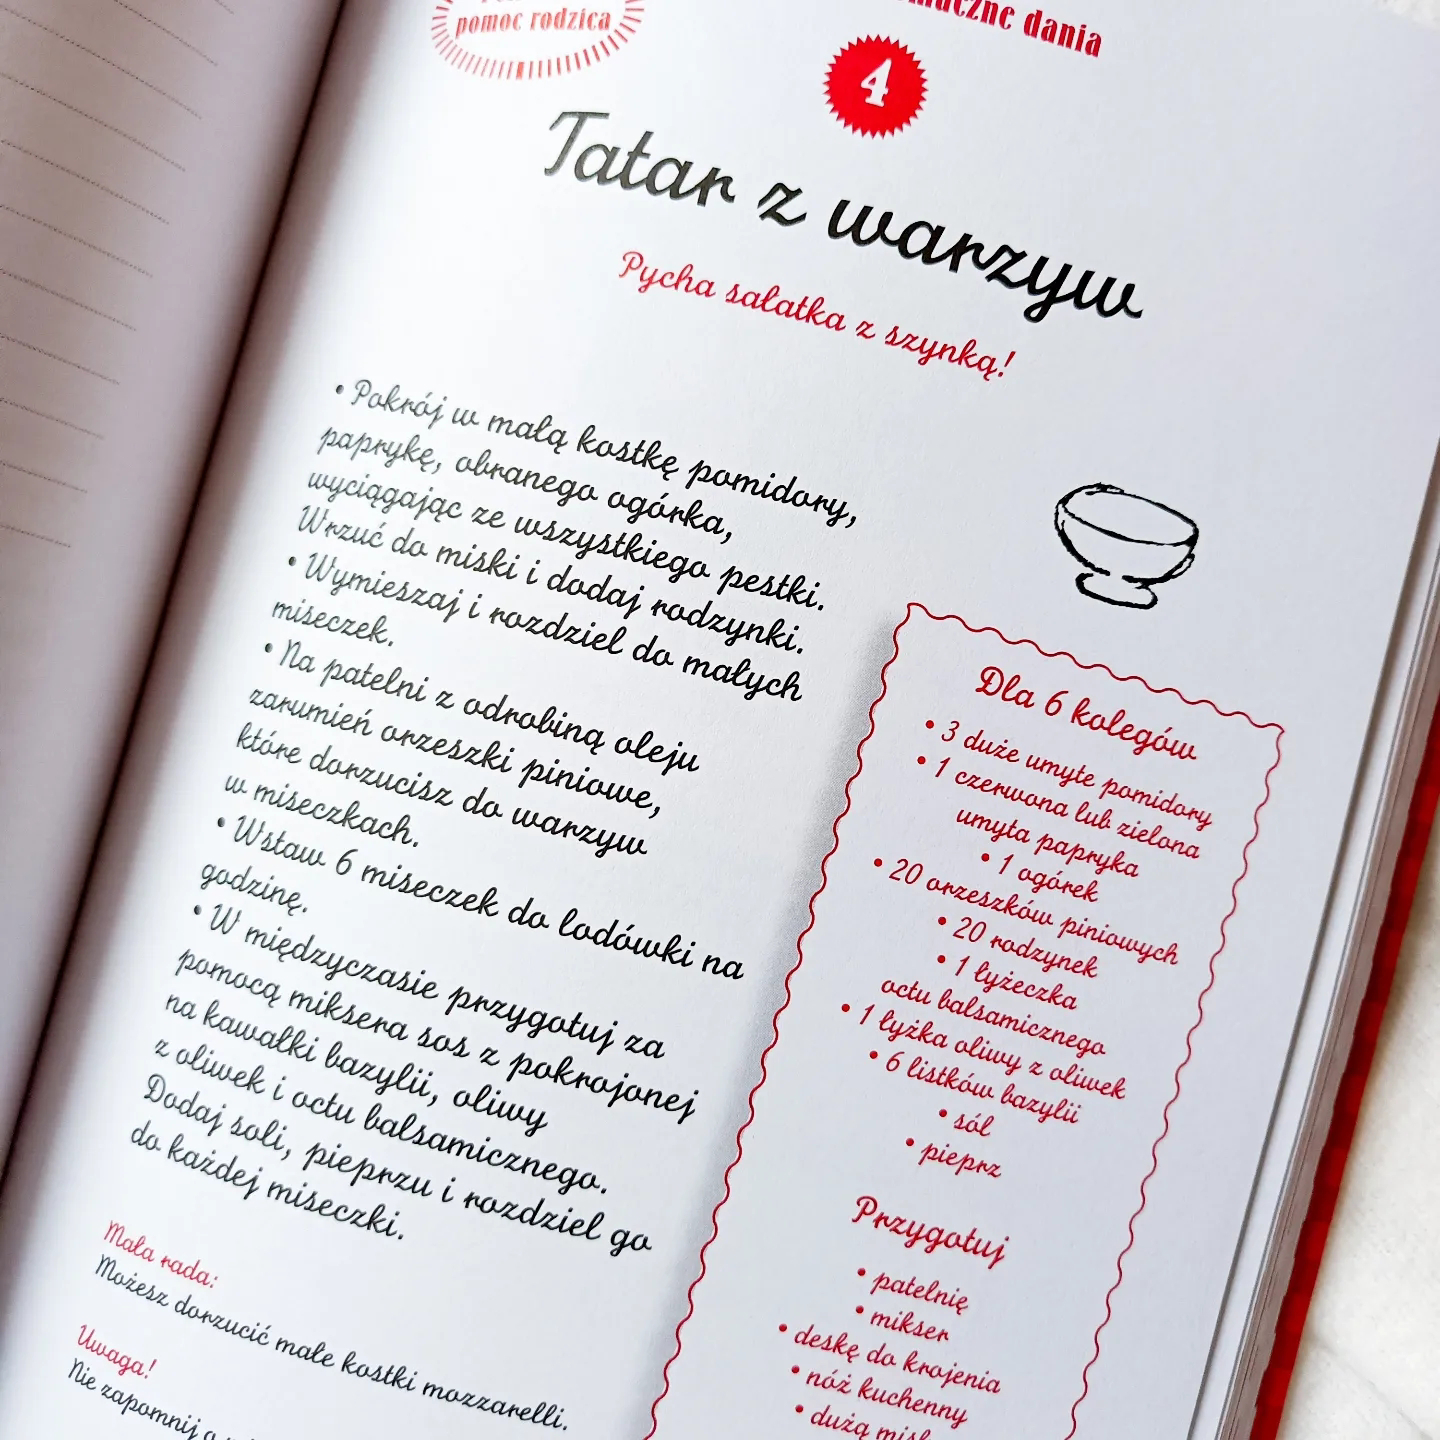 pomoc rodzica
dania
4
Tatar z warzyw
Pycha sałatka z szynką!
• Pokrój w małą kostkę pomidory,
paprykę, obranego ogórka,
wyciągając ze wszystkiego pestki.
Wrzuć do miski i dodaj rodzynki.
• Wymieszaj i rozdziel do małych
miseczek.
• Na patelni z odrobiną oleju
zarumień orzeszki piniowe,
które dorzucisz do warzyw
w miseczkach.
• Wstaw 6 miseczek do lodówki na
godzinę.
• W międzyczasie przygotuj za
pomocą miksera sos z pokrojonej
na kawałki bazylii, oliwy
z oliwek i octu balsamicznego.
Dodaj soli, pieprzu i rozdziel go
do każdej miseczki.
Mała rada:
Możesz dorzucić małe kostki mozzarelli.
Uwaga!
Nie zapomnij
Dla 6 kolegów
• 3 duże umyte pomidory
• 1 czerwona lub zielona
umyta papryka
• 1 ogórek
• 20 orzeszków piniowych
• 20 rodzynek
• 1 łyżeczka
octu balsamicznego
• 1 łyżka oliwy z oliwek
• 6 listków bazylii
• sól
• pieprz
Przygotuj
• patelnię
• mikser
• deskę do krojenia
• nóż kuchenny
• dużą